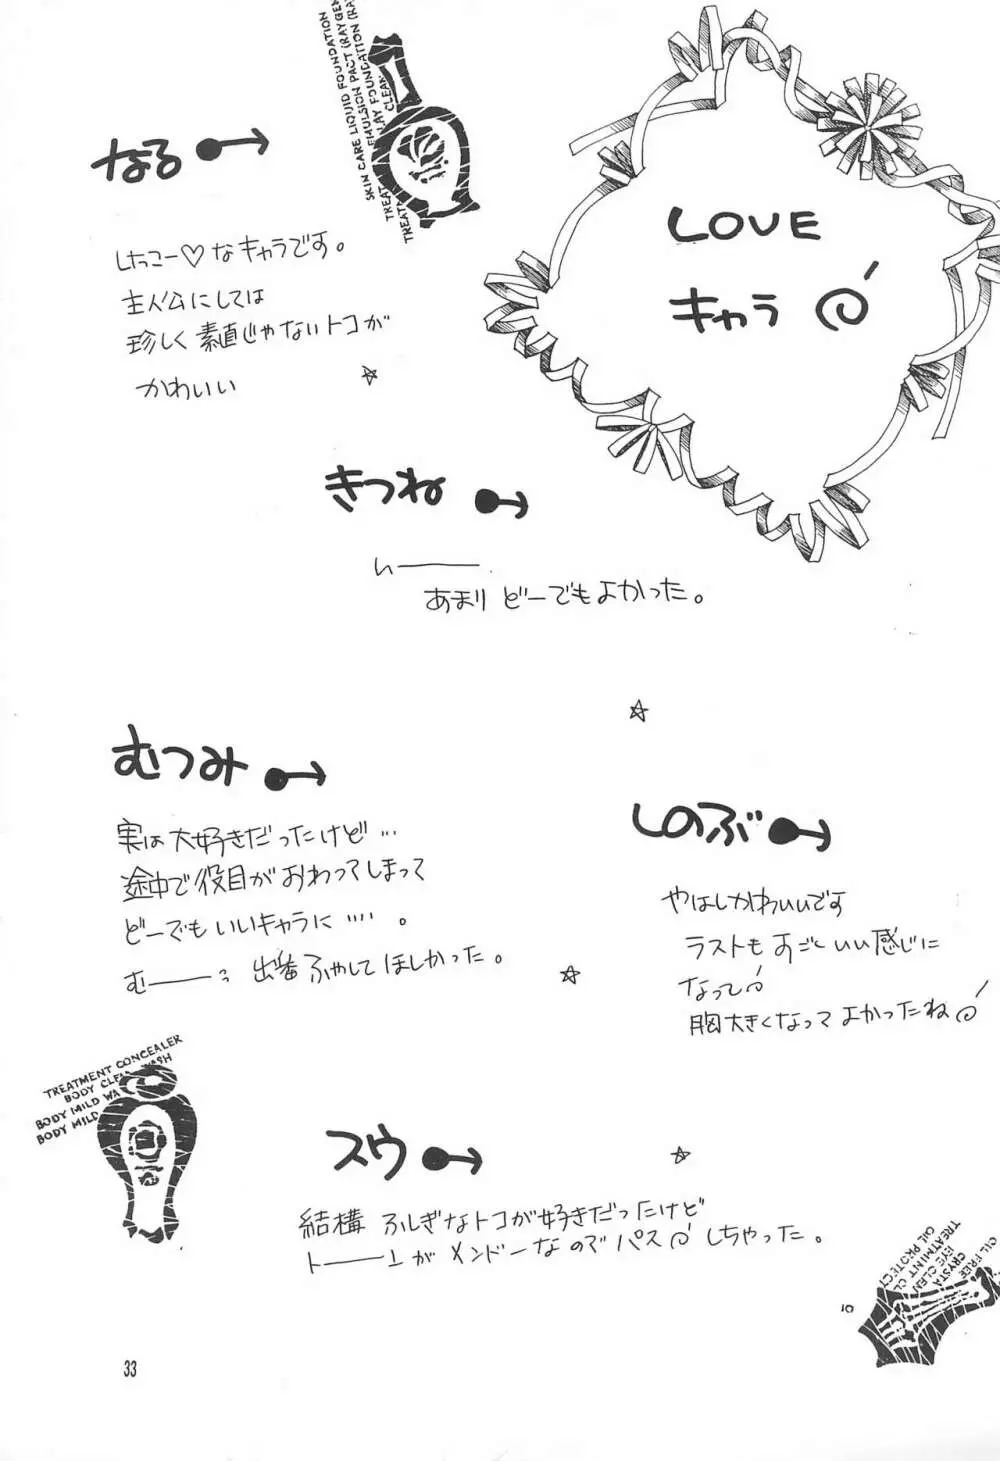 LOVE
キャラ
なる
しっこー♡なキャラです。
主人公にしては
珍しく素直じゃないトコが
かわいい
きつね
い――
あまりどーでもよかった。
むつみ
実は大好きだったけど…
途中で役目がおわってしまって
どーでもいいキャラに…。
む―― 出番ふやしてほしかった。
しのぶ
やはしかわいいです
ラストもすごくいい感じに
なって
胸大きくなってよかったね
スウ
結構ふしぎなトコが好きだったけど
ト――ンがメンドーなのでパスしちゃった。
SKIN CARE LIQUID FOUNDATION
EMULSION PACT (RAY
FOUNDATION (RA
CLEAR
TREAT
TREATM
TREATMENT CONCEALER
BODY CLE WASH
BODY MILD WA
BODY MILD
OIL FREE
CRYSTA
EYE CLEN
TREATMINT CL
OIL PROTECT
10
33